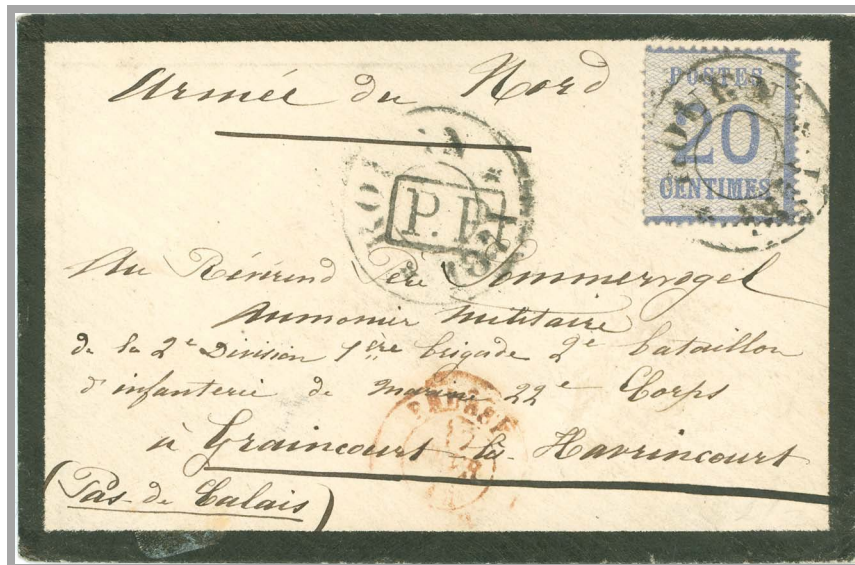 Armée du Nord
POSTES
20
CENTIMES
ROUEN
1871
P.P.
Au Révérend Père Sommervogel
Aumonier Militaire
de la 2e Division 1ère brigade 2e bataillon
d'infanterie de marine 22e Corps
PRUSSE
à Graincourt-lès-Havrincourt
(Pas-de Calais)